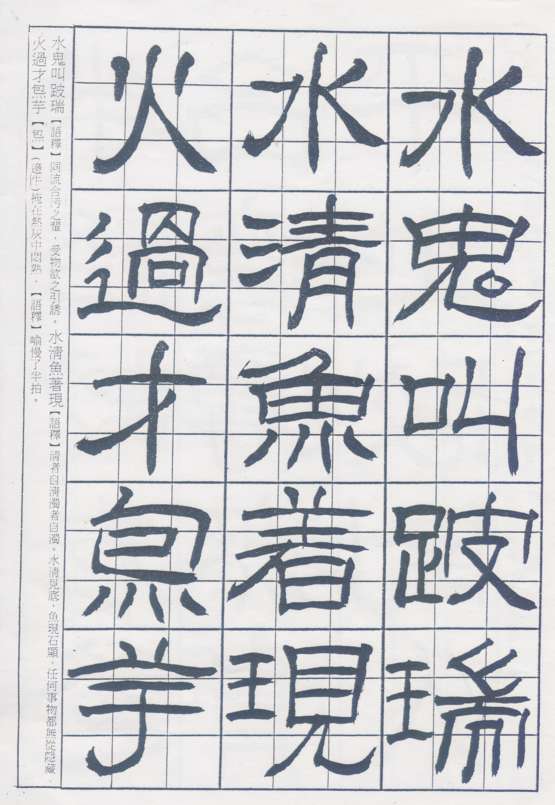 水鬼叫跛瑞
水清魚着現
火過才炰芋
水鬼叫跛瑞【語釋】同流合污之謂，受物欲之引誘。水清魚著現【語釋】清者自清濁者自濁。水清見底，魚現石顯，任何事物都無從隱藏。
火過才炰芋【炰】掩在熱灰中悶熟。【語釋】喻慢了半拍。